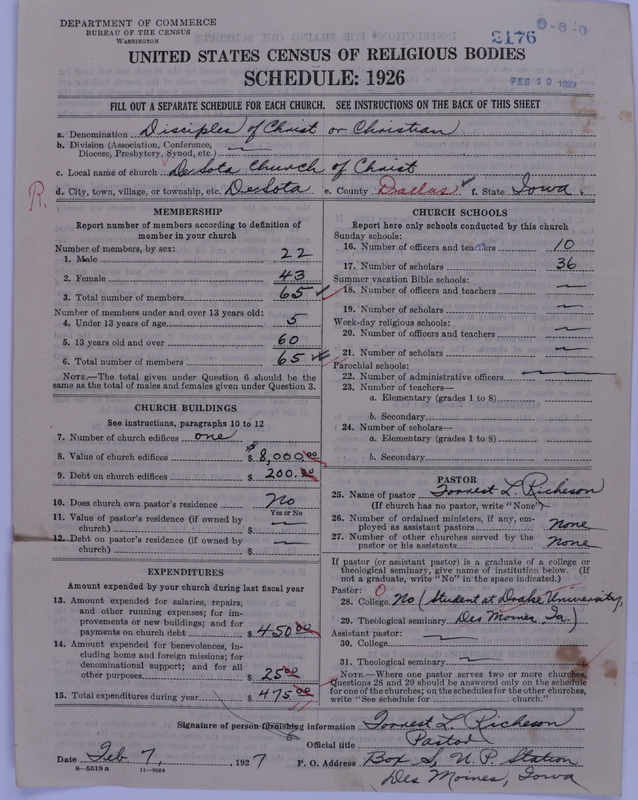 DEPARTMENT OF COMMERCE
BUREAU OF THE CENSUS
WASHINGTON
2176
0-8-0
UNITED STATES CENSUS OF RELIGIOUS BODIES
SCHEDULE: 1926
FEB 10 1927
FILL OUT A SEPARATE SCHEDULE FOR EACH CHURCH. SEE INSTRUCTIONS ON THE BACK OF THIS SHEET
a. Denomination Disciples of Christ or Christian
b. Division (Association, Conference, Diocese, Presbytery, Synod, etc.) —
c. Local name of church DeSota Church of Christ
R.
d. City, town, village, or township, etc. DeSota e. County Dallas f. State Iowa.
MEMBERSHIP
Report number of members according to definition of member in your church
Number of members, by sex:
1. Male 22
2. Female 43
3. Total number of members 65
Number of members under and over 13 years old:
4. Under 13 years of age 5
5. 13 years old and over 60
6. Total number of members 65
NOTE.—The total given under Question 6 should be the same as the total of males and females given under Question 3.
CHURCH BUILDINGS
See instructions, paragraphs 10 to 12
7. Number of church edifices one
8. Value of church edifices $ 8,000.00
9. Debt on church edifices $ 200.00
10. Does church own pastor's residence No
Yes or No
11. Value of pastor's residence (if owned by church) $ —
12. Debt on pastor's residence (if owned by church) $ —
EXPENDITURES
Amount expended by your church during last fiscal year
13. Amount expended for salaries, repairs, and other running expenses; for improvements or new buildings; and for payments on church debt $ 450 00
14. Amount expended for benevolences, including home and foreign missions; for denominational support; and for all other purposes $ 25 00
15. Total expenditures during year $ 475 00
CHURCH SCHOOLS
Report here only schools conducted by this church
Sunday schools:
16. Number of officers and teachers 10
17. Number of scholars 36
Summer vacation Bible schools:
18. Number of officers and teachers —
19. Number of scholars —
Week-day religious schools:
20. Number of officers and teachers —
21. Number of scholars —
Parochial schools:
22. Number of administrative officers —
23. Number of teachers—
a. Elementary (grades 1 to 8)
b. Secondary
24. Number of scholars—
a. Elementary (grades 1 to 8)
b. Secondary
PASTOR
25. Name of pastor Forrest L. Richeson
(If church has no pastor, write "None")
26. Number of ordained ministers, if any, employed as assistant pastors None
27. Number of other churches served by the pastor or his assistants None
If pastor (or assistant pastor) is a graduate of a college or theological seminary, give name of institution below. (If not a graduate, write "No" in the space indicated.)
Pastor:
28. College No (Student at Drake University,
29. Theological seminary Des Moines, Ia.)
Assistant pastor:
30. College —
31. Theological seminary —
NOTE.—Where one pastor serves two or more churches, Questions 28 and 29 should be answered only on the schedule for one of the churches; on the schedules for the other churches, write "See schedule for church."
Signature of person furnishing information Forrest L. Richeson
Official title Pastor
Date Feb 7, 1927 P. O. Address Box S, U.P. Station
Des Moines, Iowa
8—5518 a 11—9054